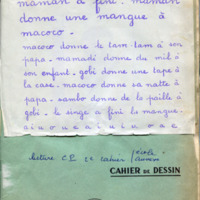 maman a fini. maman
donne une mangue à
macoco.
macoco donne le tam tam à son
papa. mamadi donne du mil à
son enfant. gobi donne une tape à
la case. macoco donne sa natte à
papa. sambo donne de la paille à
gobi. le singe a fini la mangue.
lecture C.P. 2e cahier école
CAHIER DE DESSIN